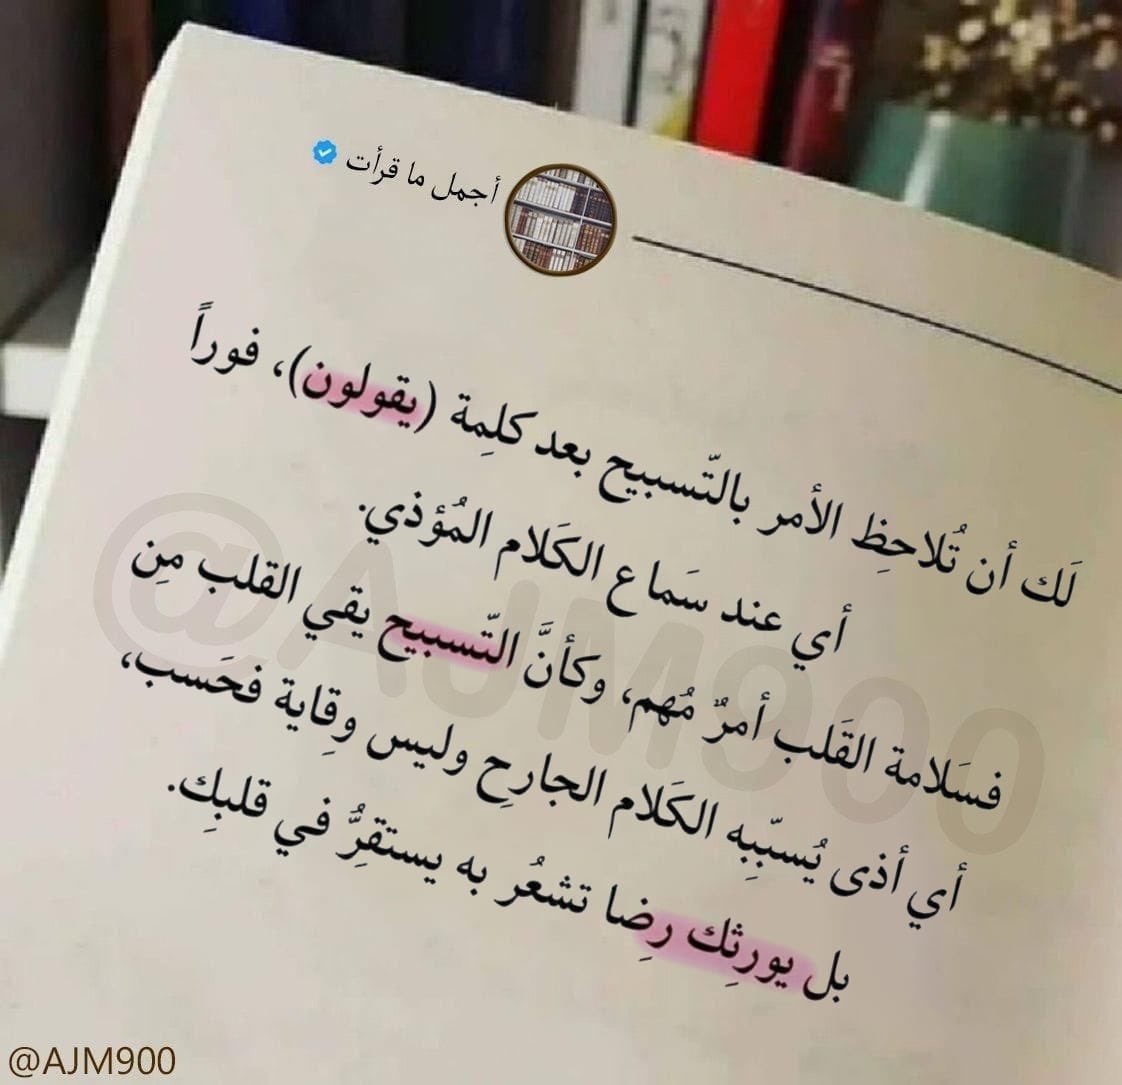 أجمل ما قرأت
لَك أن تُلاحِظ الأمر بالتّسبيح بعد كلِمة (يقولون)، فوراً
أي عند سَماع الكَلام المُؤذي.
فسَلامة القَلب أمرٌ مُهم، وكأنَّ التّسبيح يقي القلب مِن
أي أذى يُسبّبِه الكَلام الجارِح وليس وقِاية فحَسب،
بل يورثِك رِضا تشعُر به يستقرُّ في قلبِك.
@AJM900
@AJM900